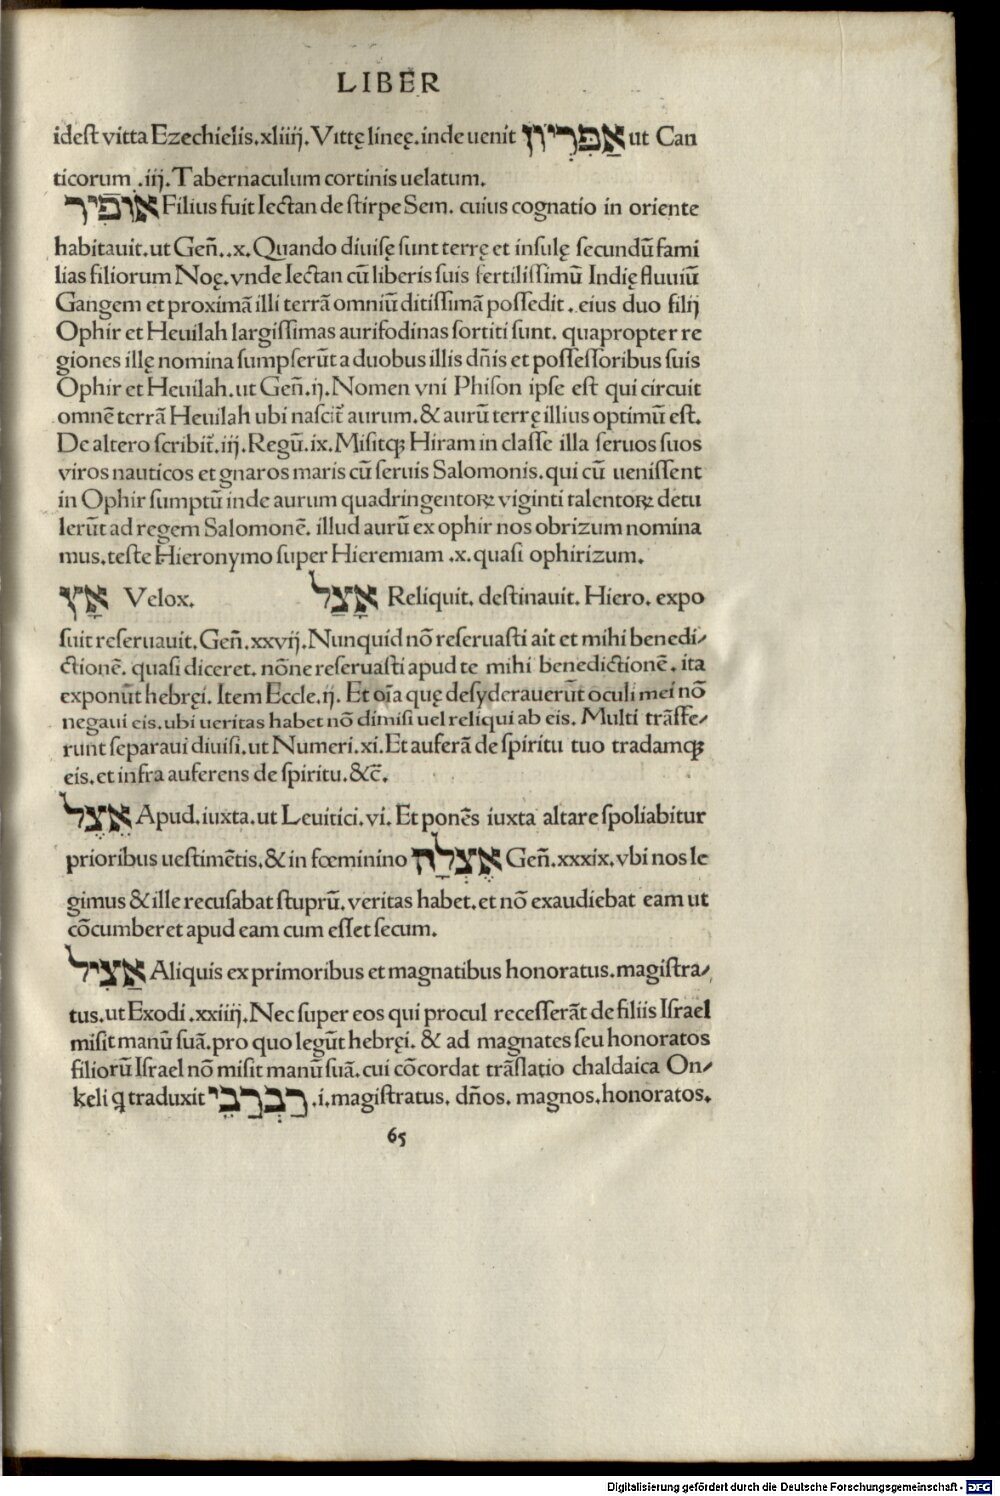 LIBER
idest vitta Ezechielis.xliiij. Vittę lineę. inde uenit אַפִּרְיוֹן ut Can
ticorum .iij. Tabernaculum cortinis uelatum.
אוֹפִיר Filius fuit Iectan de stirpe Sem. cuius cognatio in oriente
habitauit. ut Gen̄..x. Quando diuisę sunt terrę et insulę secundū fami
lias filiorum Noę. vnde Iectan cū liberis suis fertilissimū Indię fluuiū
Gangem et proximā illi terrā omniū ditissimā possedit. eius duo filij
Ophir et Heuilah largissimas aurifodinas sortiti sunt. quapropter re
giones illę nomina sumpserūt a duobus illis dn̄is et possessoribus suis
Ophir et Heuilah. ut Gen̄.ij. Nomen vni Phison ipse est qui circuit
omnē terrā Heuilah ubi nascit̄ aurum. & aurū terrę illius optimū est.
De altero scribit̄.iij. Regū.ix. Misitqꝫ Hiram in classe illa seruos suos
viros nauticos et gnaros maris cū seruis Salomonis. qui cū uenissent
in Ophir sumptū inde aurum quadringentoꝝ viginti talentoꝝ detu
lerūt ad regem Salomonē. illud aurū ex ophir nos obrizum nomina
mus. teste Hieronymo super Hieremiam .x. quasi ophirizum.
אָץ Velox. אָצַל Reliquit. destinauit. Hiero. expo
suit reseruauit. Gen̄.xxvij. Nunquid nō reseruasti ait et mihi benedi/
ctionē. quasi diceret. nōne reseruasti apud te mihi benedictionē. ita
exponūt hebręi. Item Eccle.ij. Et oīa quę desyderauerūt oculi mei nō
negaui eis. ubi ueritas habet nō dimisi uel reliqui ab eis. Multi trāsfe/
runt separaui diuisi. ut Numeri.xi. Et auferā de spiritu tuo tradamqꝫ
eis. et infra auferens de spiritu. &c̄.
אֵצֶל Apud. iuxta. ut Leuitici.vi. Et ponēs iuxta altare spoliabitur
prioribus uestimētis. & in fœminino אֶצְלָהּ Gen̄.xxxix. vbi nos le
gimus & ille recusabat stuprū. veritas habet. et nō exaudiebat eam ut
cōcumberet apud eam cum esset secum.
אֲצִיל Aliquis ex primoribus et magnatibus honoratus. magistra/
tus. ut Exodi .xxiiij. Nec super eos qui procul recesserāt de filiis Israel
misit manū suā. pro quo legūt hebręi. & ad magnates seu honoratos
filiorū Israel nō misit manū suā. cui cōcordat trāslatio chaldaica On/
keli q traduxit רַבְרְבֵי .i. magistratus. dn̄os. magnos. honoratos.
65
Digitalisierung gefördert durch die Deutsche Forschungsgemeinschaft - DFG